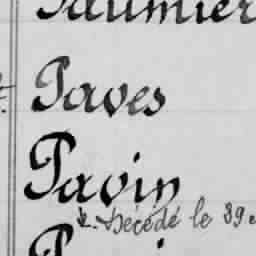 Paumier
Paves
Pavin
Décédé le 39